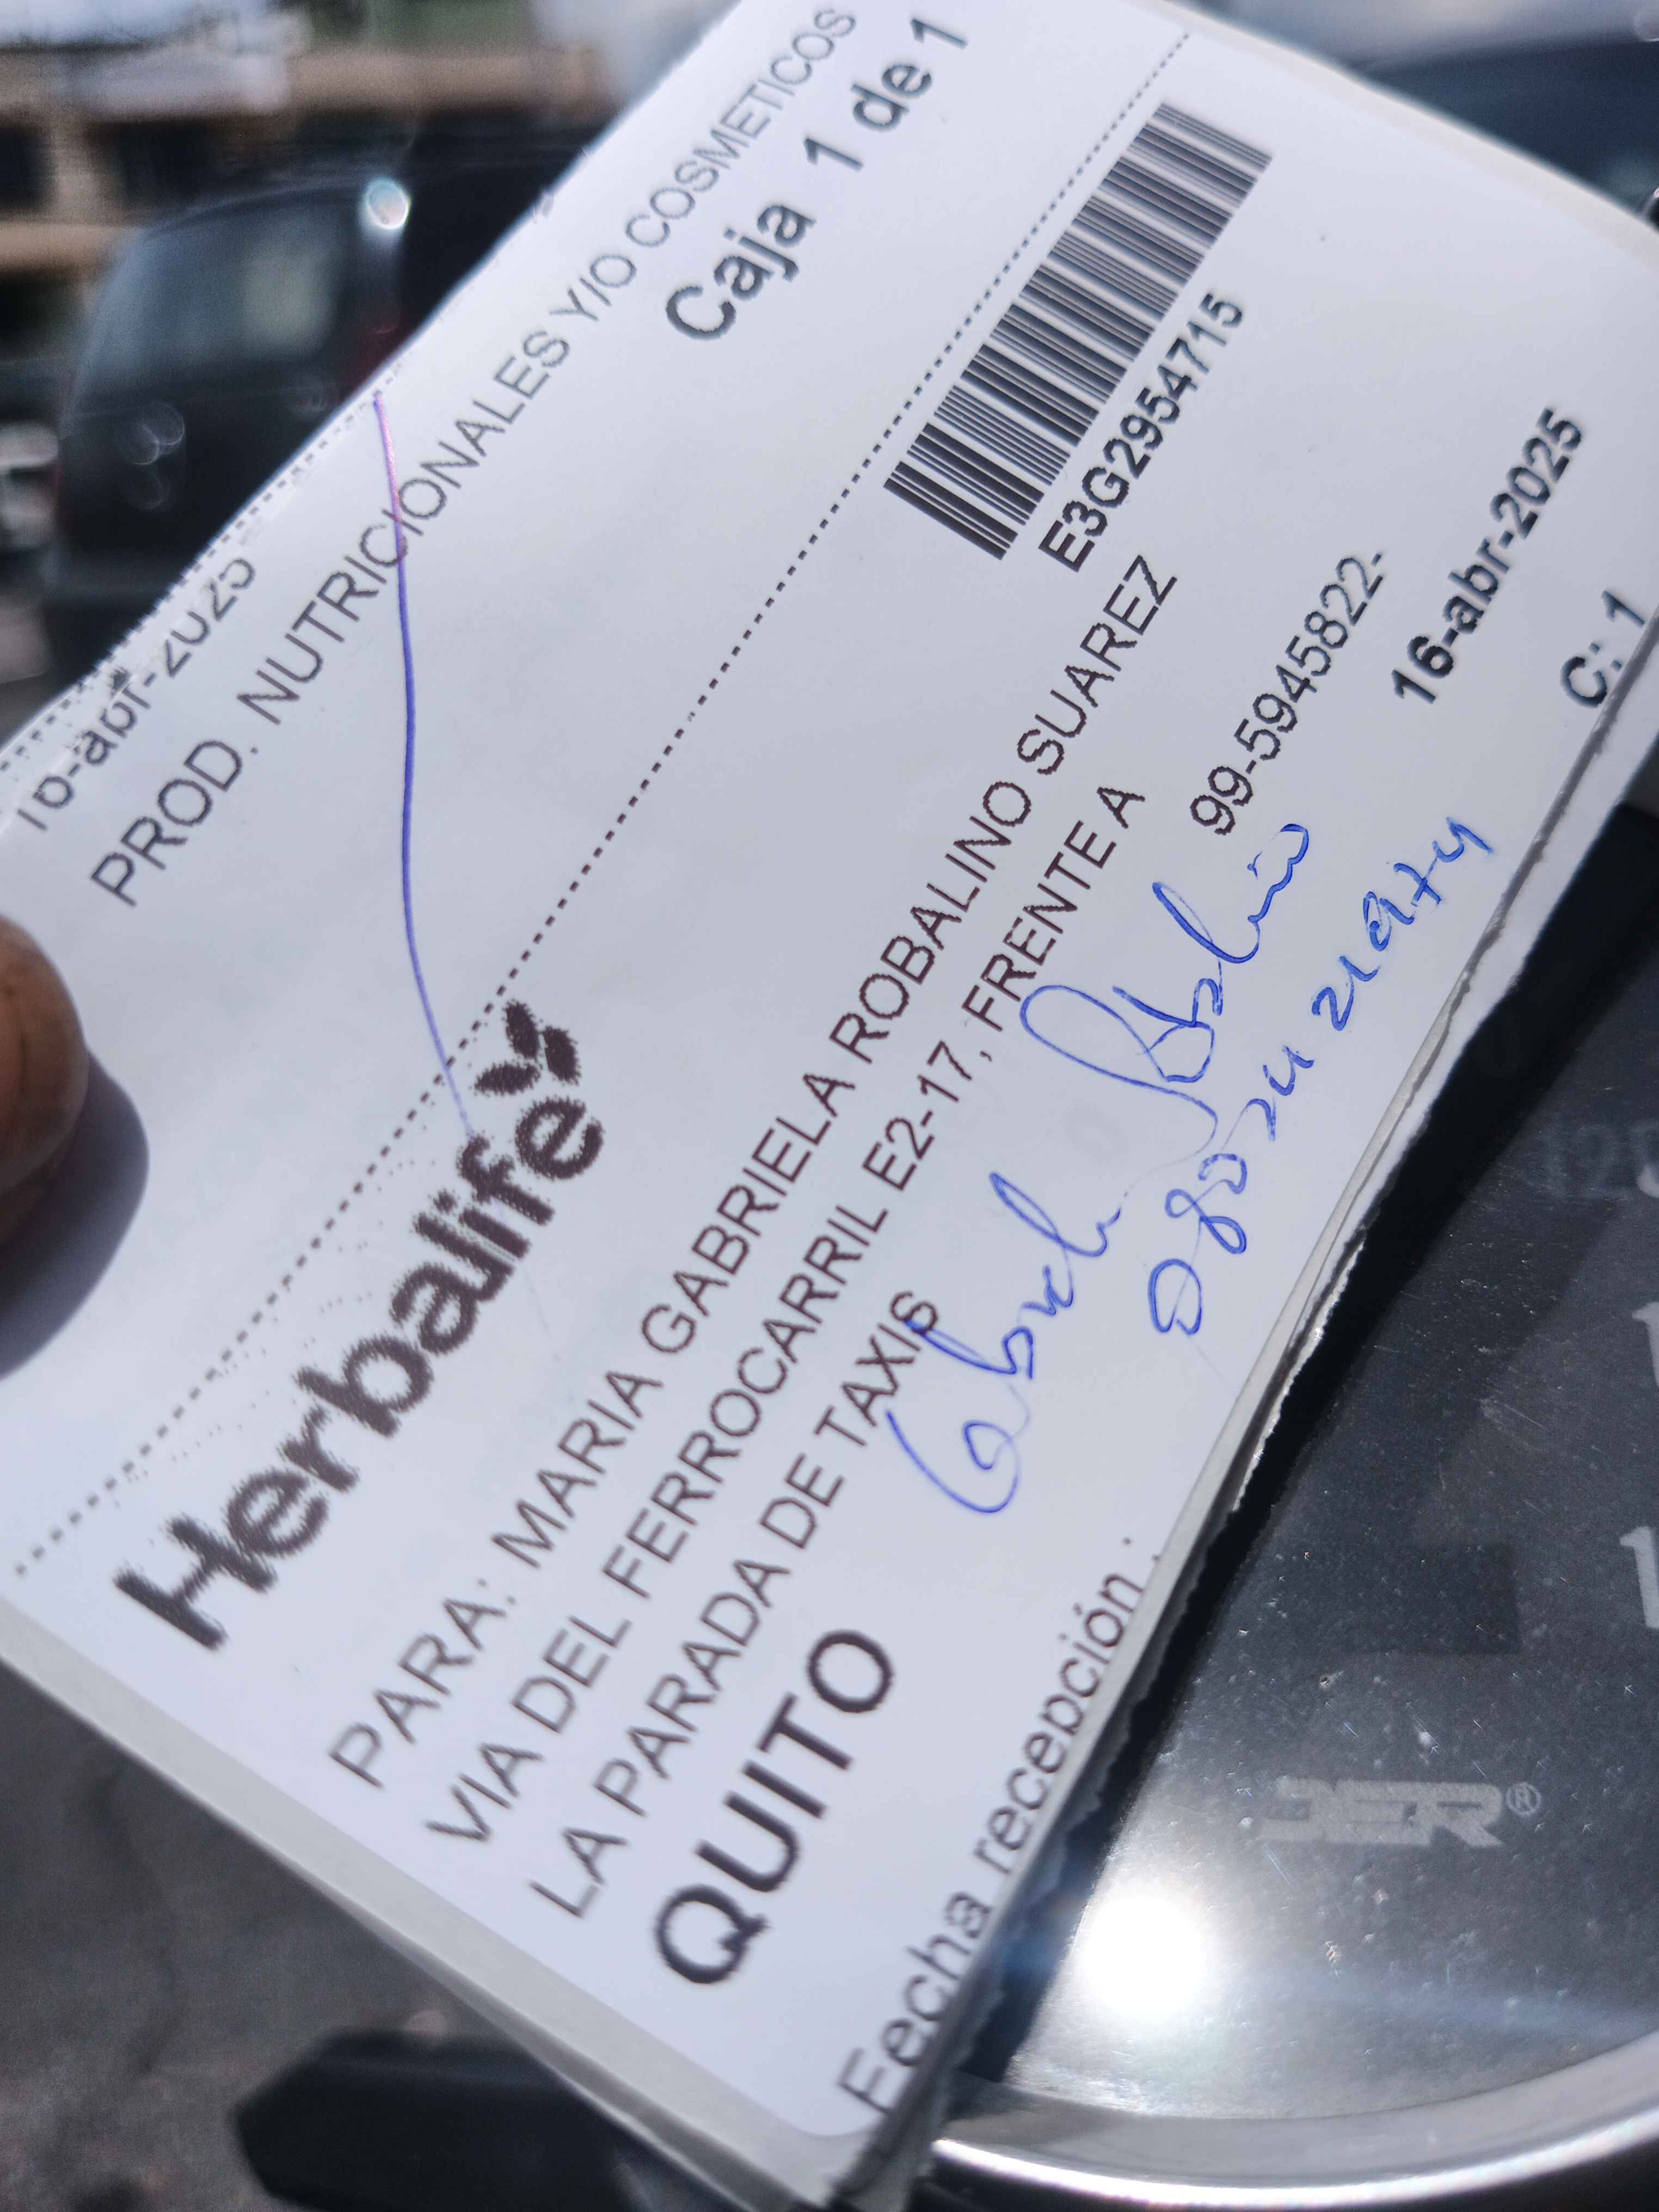 16-abr-2025
PROD. NUTRICIONALES Y/O COSMETICOS
Caja 1 de 1
Herbalife
E3G2954715
PARA: MARIA GABRIELA ROBALINO SUAREZ
VIA DEL FERROCARRIL E2-17, FRENTE A
LA PARADA DE TAXIS
99-5945822-
QUITO
16-abr-2025
Fecha recepción :
C: 1